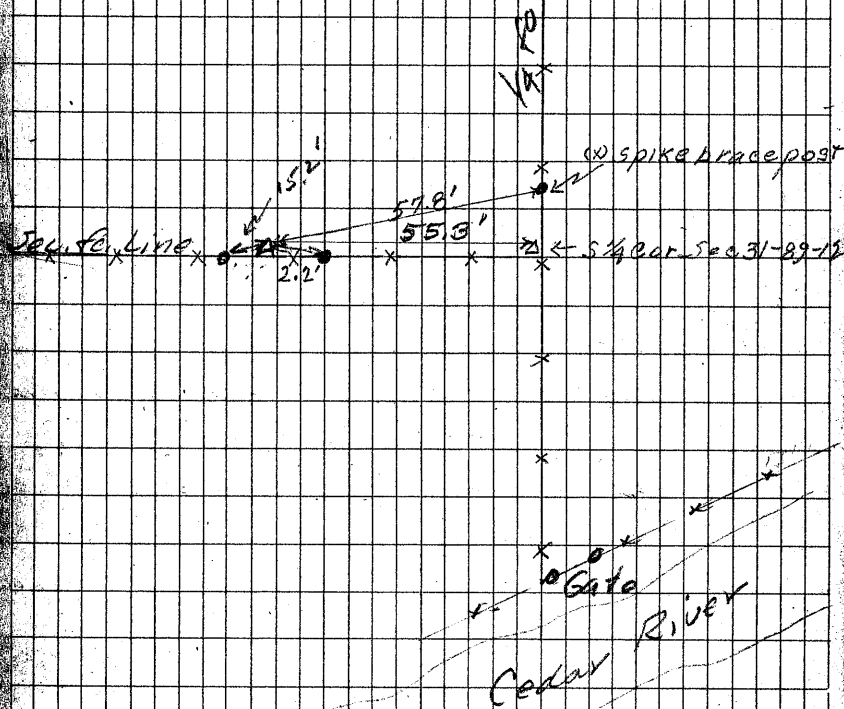 1/4 fc
(x) spike brace post
15.2'
57.8'
55.3'
Sec. fc. Line
S 1/4 Cor. Sec 31-89-12
2.2'
Gate
Cedar River